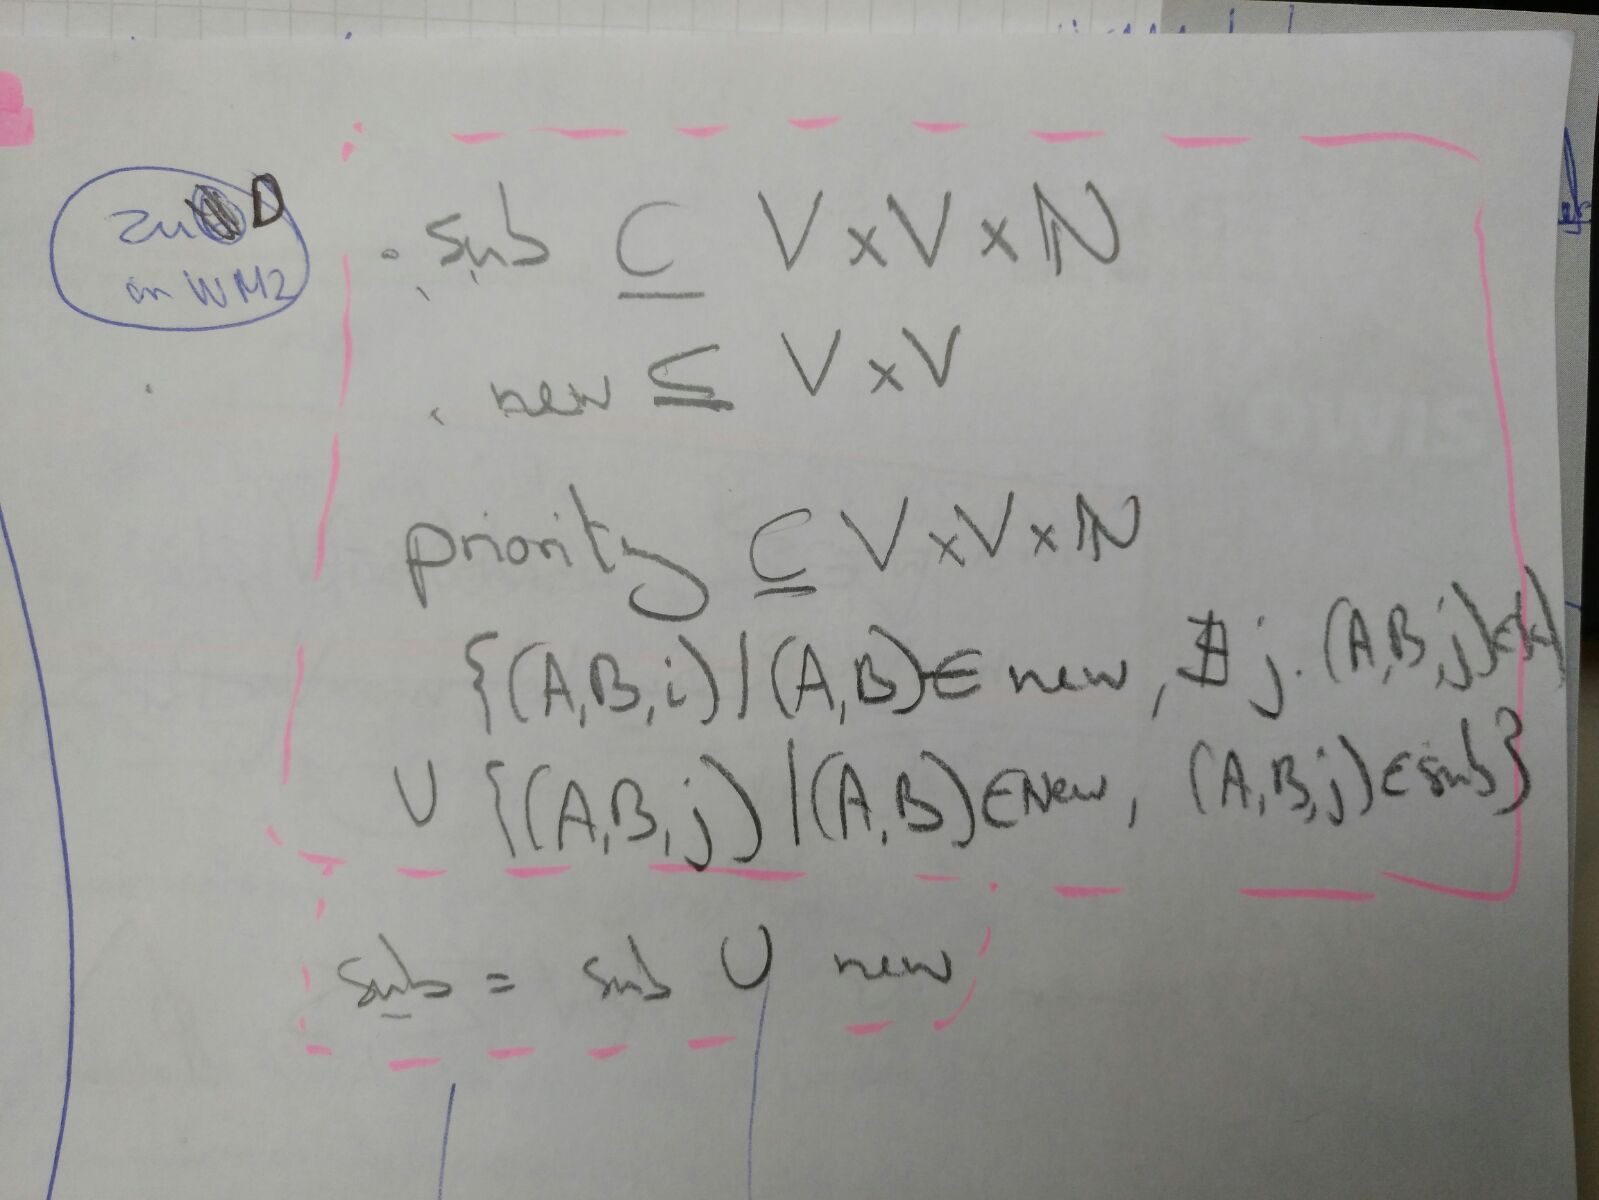 zu D
an WM2
· sub ⊆ V×V×ℕ
· new ⊆ V×V
priority ⊆ V×V×ℕ
{(A,B,i) | (A,B) ∈ new, ∄ j. (A,B,j) ∈
∪ {(A,B,j) | (A,B) ∈ New, (A,B,j) ∈ sub}
sub = sub ∪ new